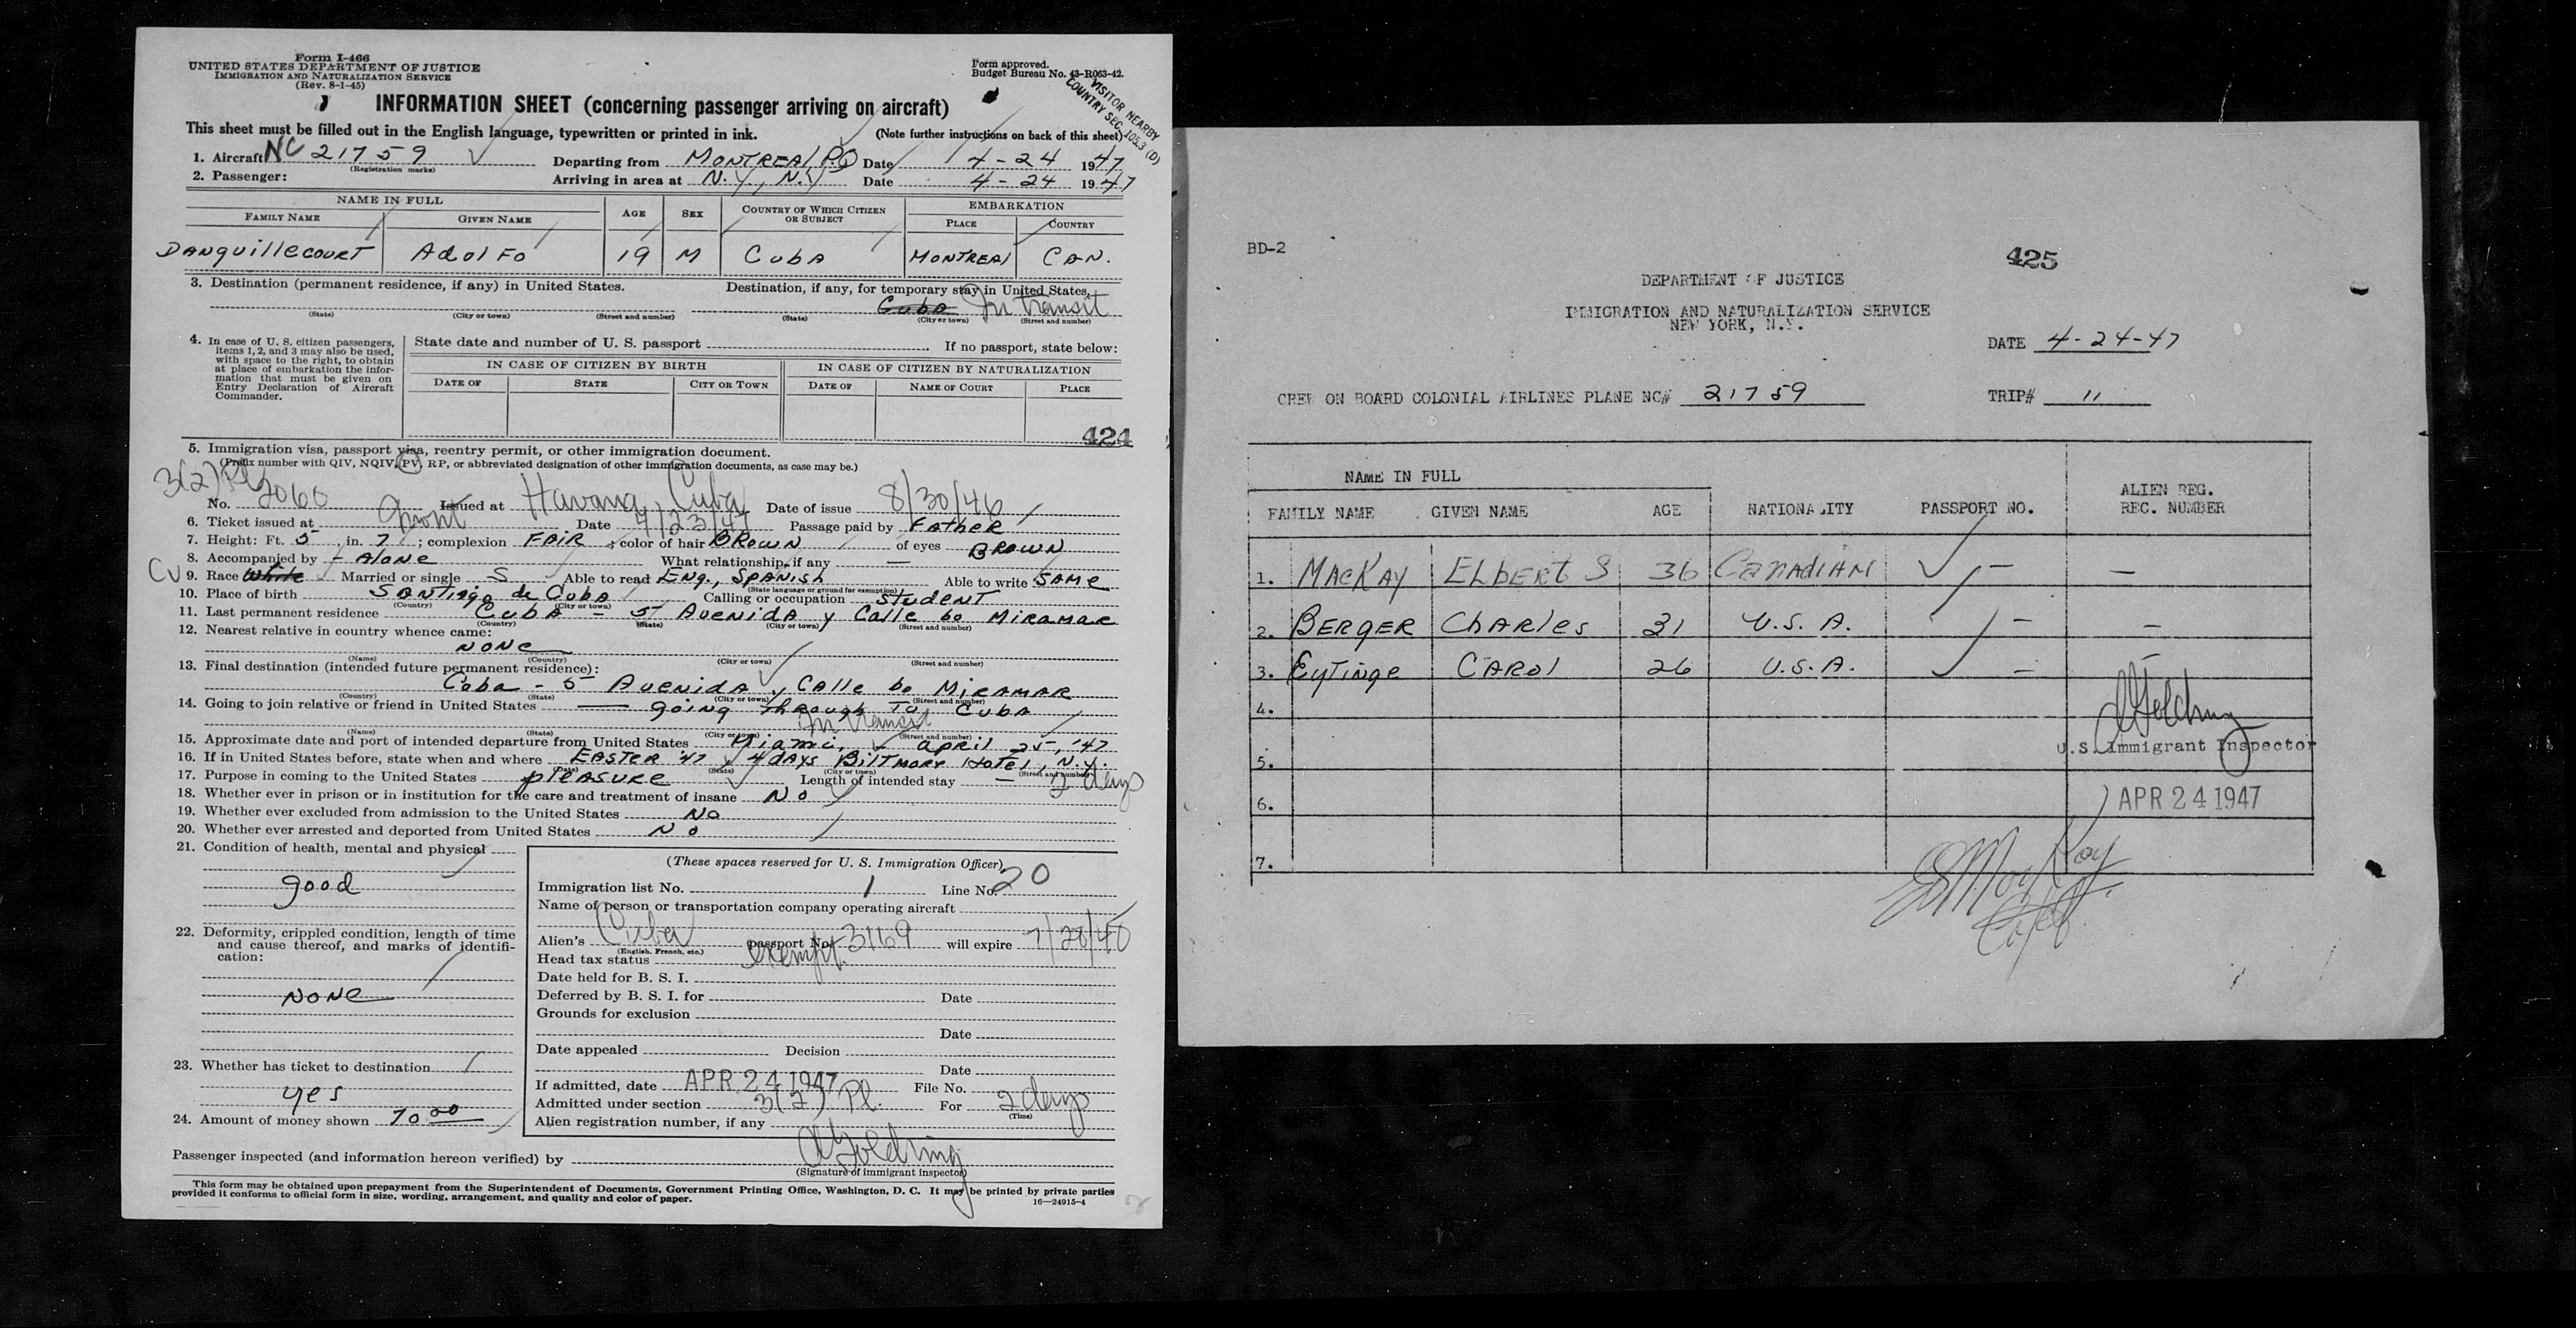 Form I-466
UNITED STATES DEPARTMENT OF JUSTICE
IMMIGRATION AND NATURALIZATION SERVICE
(Rev. 8-1-45)
Form approved.
Budget Bureau No. 43-R063-42.
VISITOR NEARBY
COUNTRY SEC. 105.3 (D)
INFORMATION SHEET (concerning passenger arriving on aircraft)
This sheet must be filled out in the English language, typewritten or printed in ink. (Note further instructions on back of this sheet)
1. Aircraft NC 21759 Departing from MONTREAL P.Q Date 4-24 1947
(Registration marks)
2. Passenger: Arriving in area at N.Y., N.Y Date 4-24 1947
NAME IN FULL AGE SEX COUNTRY OF WHICH CITIZEN OR SUBJECT EMBARKATION
FAMILY NAME GIVEN NAME PLACE COUNTRY
DANquillecourt AdolFo 19 M CubA MONTREAl CAN.
3. Destination (permanent residence, if any) in United States. Destination, if any, for temporary stay in United States.
Cuba In transit
(State) (City or town) (Street and number) (State) (City or town) (Street and number)
4. In case of U. S. citizen passengers, items 1, 2, and 3 may also be used, with space to the right, to obtain at place of embarkation the information that must be given on Entry Declaration of Aircraft Commander.
State date and number of U. S. passport If no passport, state below:
IN CASE OF CITIZEN BY BIRTH IN CASE OF CITIZEN BY NATURALIZATION
DATE OF STATE CITY OR TOWN DATE OF NAME OF COURT PLACE
424
5. Immigration visa, passport visa, reentry permit, or other immigration document.
(Prefix number with QIV, NQIV, PV, RP, or abbreviated designation of other immigration documents, as case may be.)
3(2) Pl
No. 2060 Issued at Havana, Cuba Date of issue 8/30/46
6. Ticket issued at Date 4/23/47 Passage paid by FATHER
7. Height: Ft. 5 in. 7; complexion FAIR; color of hair BROWN of eyes BROWN
8. Accompanied by - Alone What relationship, if any —
CU 9. Race White Married or single S Able to read Eng., SPANISh Able to write SAME
(State language or ground for exemption)
10. Place of birth SANTIAgo de CubA Calling or occupation STUDENT
(Country) (City or town)
11. Last permanent residence CubA - 5- AVENIDA y Calle 60 MIRAMAR
(Country) (State) (City or town) (Street and number)
12. Nearest relative in country whence came:
NONE
(Name) (Country) (City or town) (Street and number)
13. Final destination (intended future permanent residence):
Cuba - 5- AVENIDA y CAlle 60 MIRAMAR
(Country) (State) (City or town) (Street and number)
14. Going to join relative or friend in United States — going through To CUBA
In transit
(Name) (State) (City or town) (Street and number)
15. Approximate date and port of intended departure from United States Miami, April 25, '47
16. If in United States before, state when and where EASTER '47 4 dAYS BiltMORE Hotel, N.Y.
(Date) (State) (City or town) (Street and number)
17. Purpose in coming to the United States pleASURE Length of intended stay — 2 days
18. Whether ever in prison or in institution for the care and treatment of insane No
19. Whether ever excluded from admission to the United States No
20. Whether ever arrested and deported from United States No
21. Condition of health, mental and physical
good
22. Deformity, crippled condition, length of time and cause thereof, and marks of identification:
NONE
23. Whether has ticket to destination
yes
24. Amount of money shown 70.00
(These spaces reserved for U. S. Immigration Officer)
Immigration list No. 1 Line No. 20
Name of person or transportation company operating aircraft
Alien's Cuba passport No. 3169 will expire
(English, French, etc.)
Head tax status exempt.
Date held for B. S. I.
Deferred by B. S. I. for Date
Grounds for exclusion
Date
Date appealed Decision
Date
If admitted, date APR 24 1947 File No.
Admitted under section 3(2) Pl. For 2 days
(Time)
Alien registration number, if any
Passenger inspected (and information hereon verified) by A Golding
(Signature of immigrant inspector)
This form may be obtained upon prepayment from the Superintendent of Documents, Government Printing Office, Washington, D. C. It may be printed by private parties
provided it conforms to official form in size, wording, arrangement, and quality and color of paper. 16—24915-4
BD-2
425
DEPARTMENT OF JUSTICE
IMMIGRATION AND NATURALIZATION SERVICE
NEW YORK, N.Y.
DATE 4-24-47
CREW ON BOARD COLONIAL AIRLINES PLANE NC# 21759 TRIP# 11
NAME IN FULL
FAMILY NAME GIVEN NAME AGE NATIONALITY PASSPORT NO. ALIEN REG. REC. NUMBER
1. MACKAY ELBERT S 36 CANADIAN — —
2. BERGER ChARles 31 U.S.A. — —
3. Eytinge CAROl 26 U.S.A. — —
4.
A Golding
U.S. Immigrant Inspector
5.
6.
APR 24 1947
7.